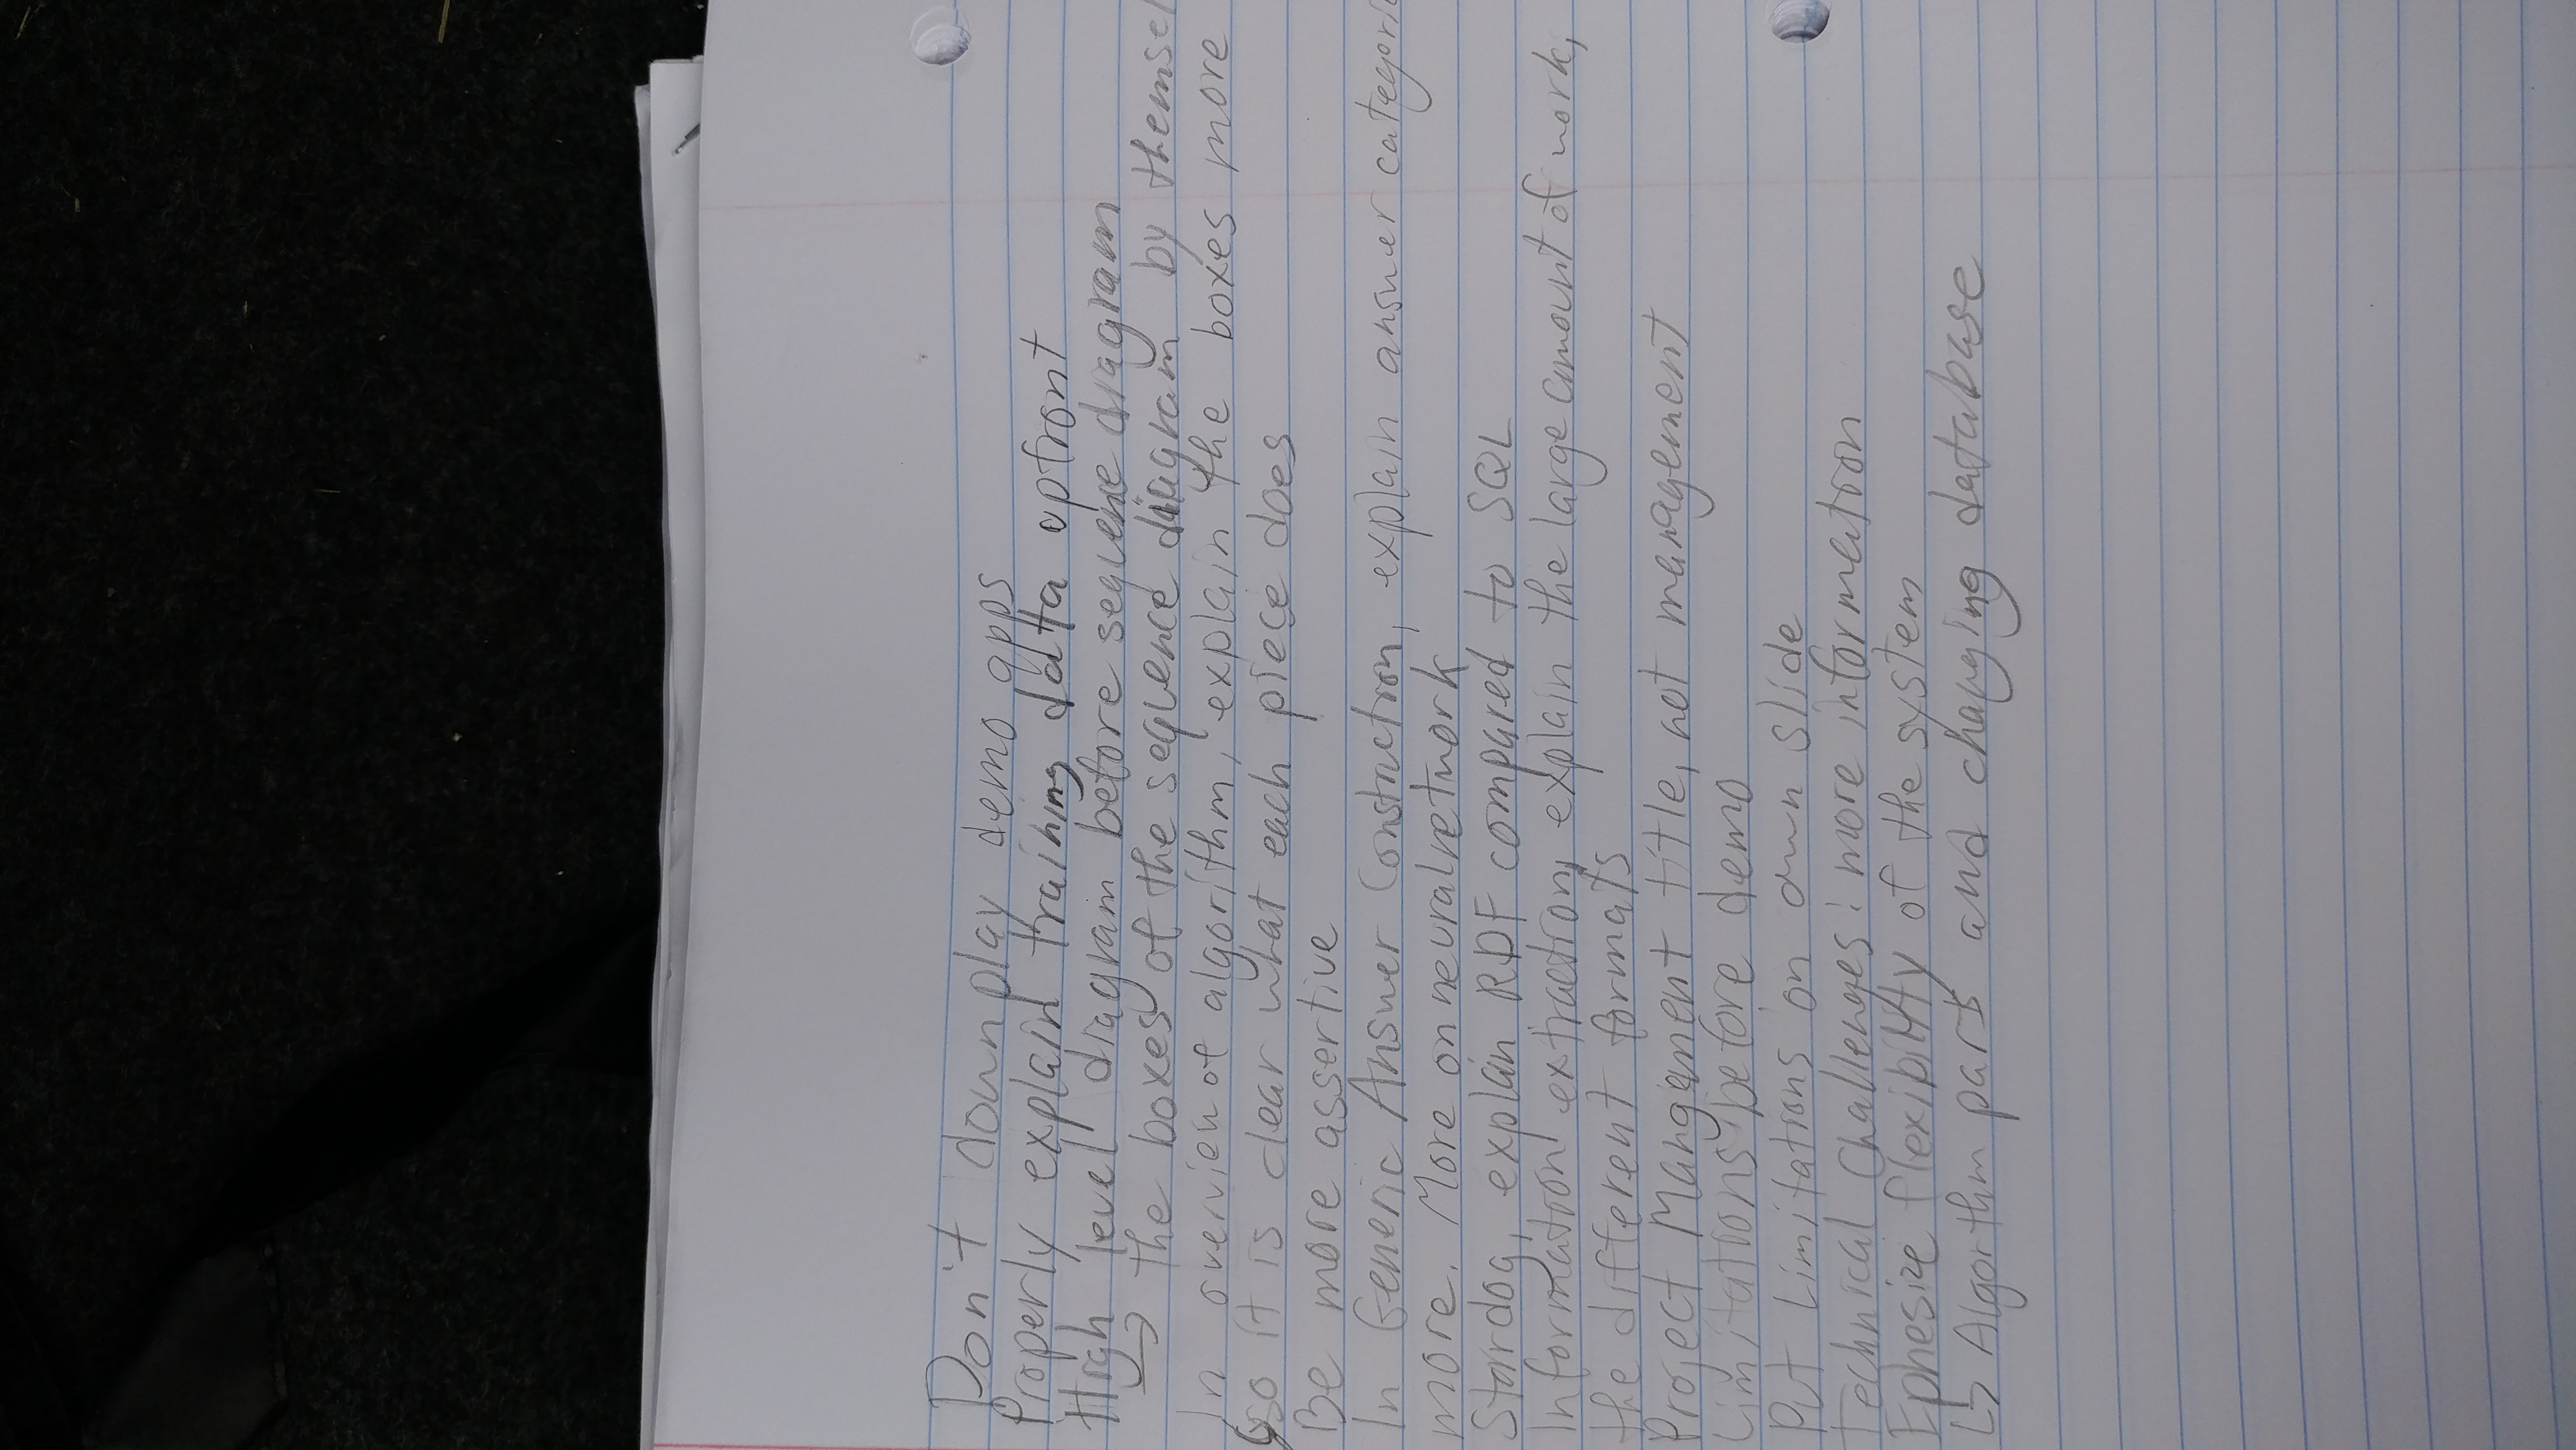 Don't downplay demo apps
Properly explain training data upfront
High level diagram before sequence diagram
→ the boxes of the sequence diagram by themsel
In overview of algorithm, explain the boxes more
so it is clear what each piece does
Be more assertive
In Generic Answer Construction, explain answer categori
more. More on neural network
Stardog, explain RDF compared to SQL
Information extraction, explain the large amount of work,
the different formats
Project Mangement title, not management
Limitations before demo
Put Limitations on own slide
Technical Challenges: more information
Ephesize flexibility of the system
↳ Algorthm parts and changing database